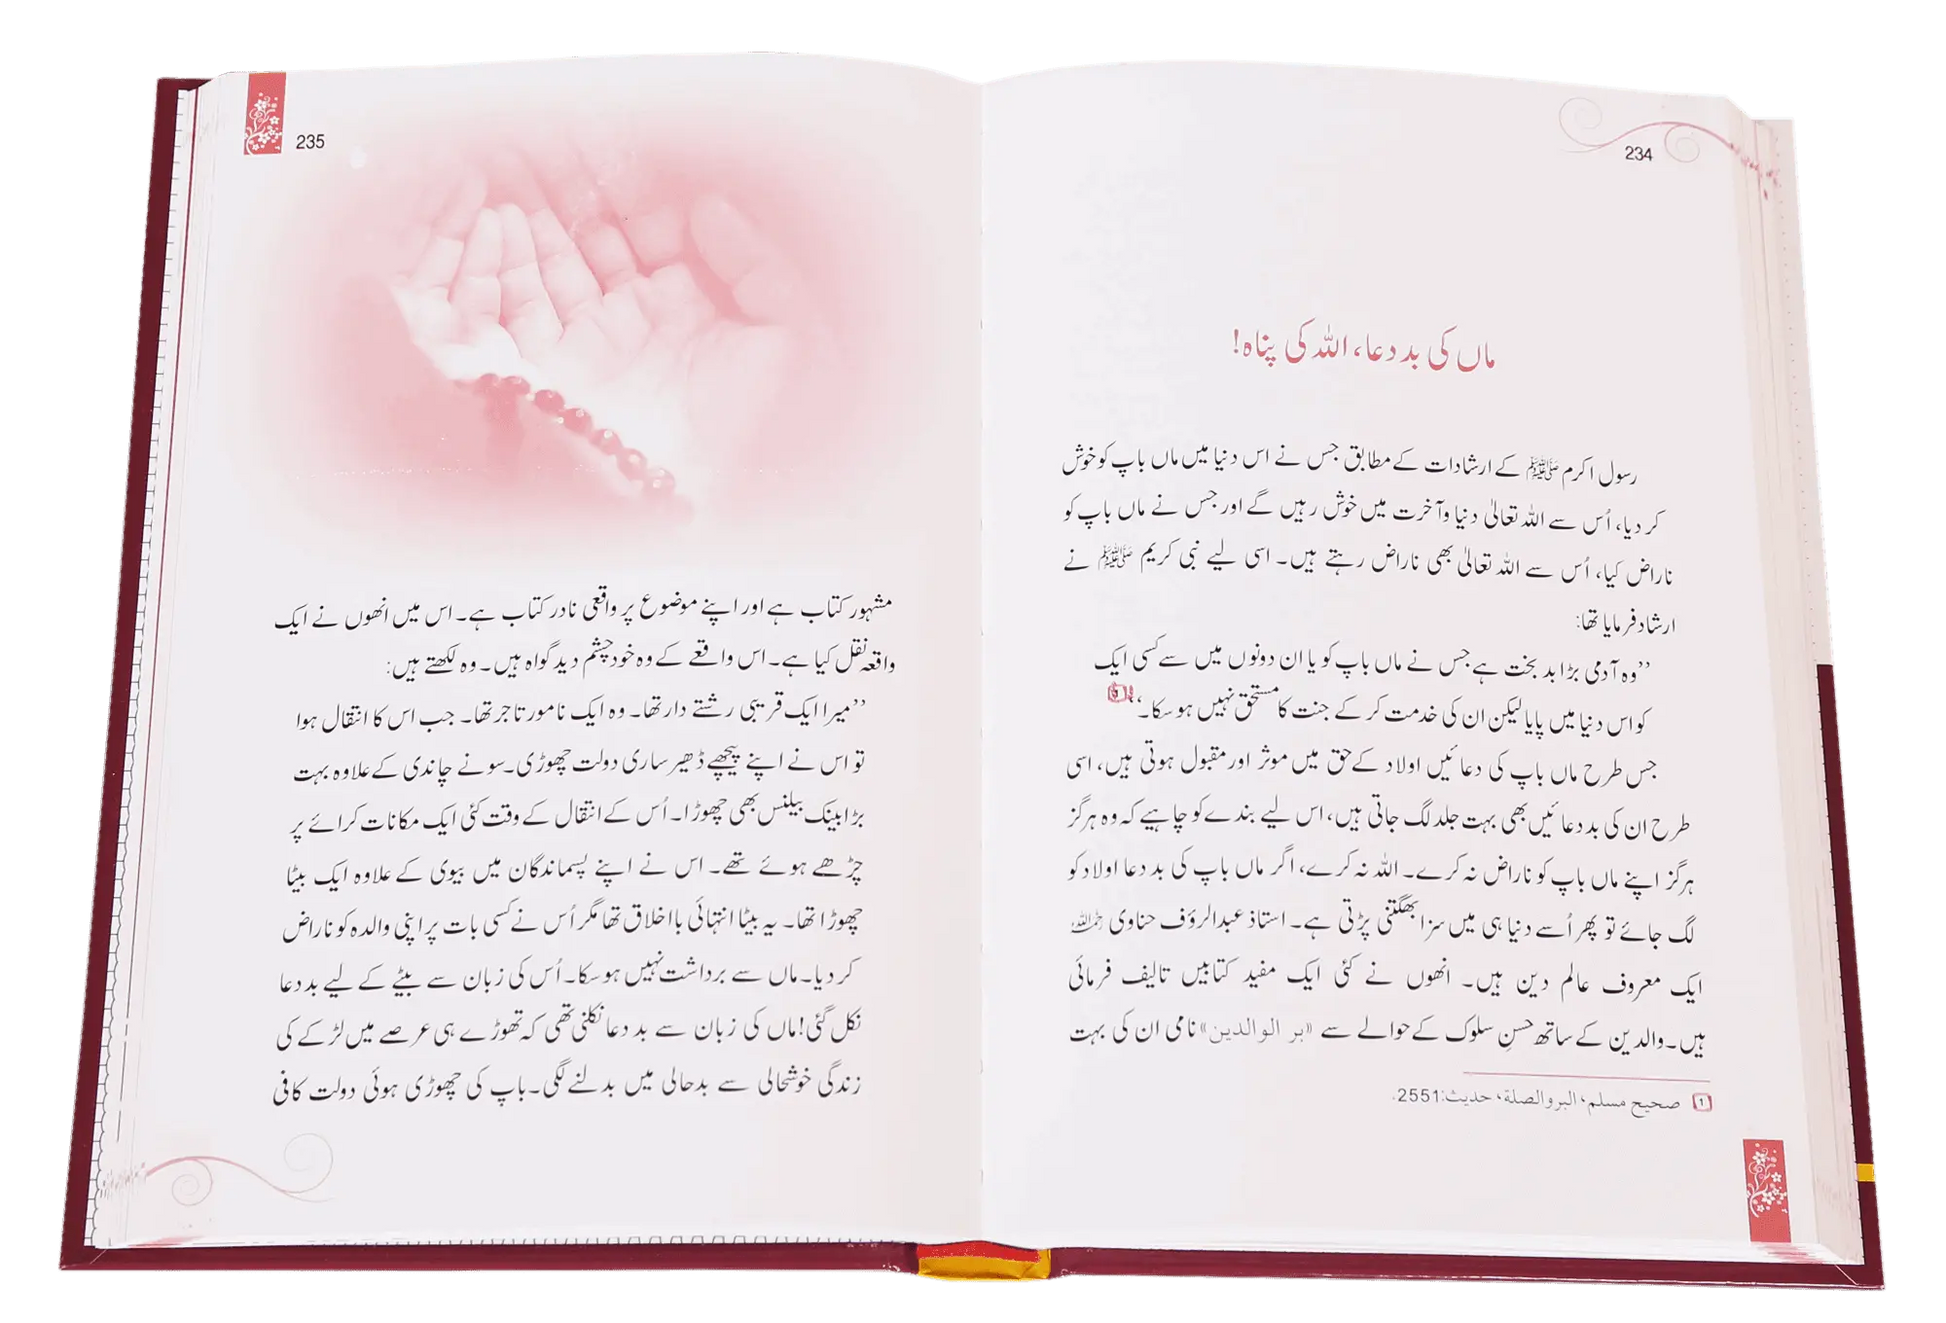 234
ماں کی بددعا، اللہ کی پناہ!
رسول اکرم ﷺ کے ارشادات کے مطابق جس نے اس دنیا میں ماں باپ کو خوش
کر دیا، اُس سے اللہ تعالیٰ دنیا وآخرت میں خوش رہیں گے اور جس نے ماں باپ کو
ناراض کیا، اُس سے اللہ تعالیٰ بھی ناراض رہتے ہیں۔ اسی لیے نبی کریم ﷺ نے
ارشاد فرمایا تھا:
’’وہ آدمی بڑا بدبخت ہے جس نے ماں باپ کو یا ان دونوں میں سے کسی ایک
کو اس دنیا میں پایا لیکن ان کی خدمت کر کے جنت کا مستحق نہیں ہو سکا۔‘‘
جس طرح ماں باپ کی دعائیں اولاد کے حق میں موثر اور مقبول ہوتی ہیں، اسی
طرح ان کی بددعائیں بھی بہت جلد لگ جاتی ہیں، اس لیے بندے کو چاہیے کہ وہ ہرگز
ہرگز اپنے ماں باپ کو ناراض نہ کرے۔ اللہ نہ کرے، اگر ماں باپ کی بددعا اولاد کو
لگ جائے تو پھر اُسے دنیا ہی میں سزا بھگتنی پڑتی ہے۔ استاذ عبدالرؤف حناوی رحمہ اللہ
ایک معروف عالم دین ہیں۔ انھوں نے کئی ایک مفید کتابیں تالیف فرمائی
ہیں۔ والدین کے ساتھ حسنِ سلوک کے حوالے سے «بر الوالدین» نامی ان کی بہت
1 صحیح مسلم، البر والصلة، حدیث:2551.
235
مشہور کتاب ہے اور اپنے موضوع پر واقعی نادر کتاب ہے۔ اس میں انھوں نے ایک
واقعہ نقل کیا ہے۔ اس واقعے کے وہ خود چشم دید گواہ ہیں۔ وہ لکھتے ہیں:
’’میرا ایک قریبی رشتے دار تھا۔ وہ ایک نامور تاجر تھا۔ جب اس کا انتقال ہوا
تو اس نے اپنے پیچھے ڈھیر ساری دولت چھوڑی۔ سونے چاندی کے علاوہ بہت
بڑا بینک بیلنس بھی چھوڑا۔ اُس کے انتقال کے وقت کئی ایک مکانات کرائے پر
چڑھے ہوئے تھے۔ اس نے اپنے پسماندگان میں بیوی کے علاوہ ایک بیٹا
چھوڑا تھا۔ یہ بیٹا انتہائی بااخلاق تھا مگر اُس نے کسی بات پر اپنی والدہ کو ناراض
کر دیا۔ ماں سے برداشت نہیں ہو سکا۔ اُس کی زبان سے بیٹے کے لیے بددعا
نکل گئی! ماں کی زبان سے بددعا نکلنی تھی کہ تھوڑے ہی عرصے میں لڑکے کی
زندگی خوشحالی سے بدحالی میں بدلنے لگی۔ باپ کی چھوڑی ہوئی دولت کافی